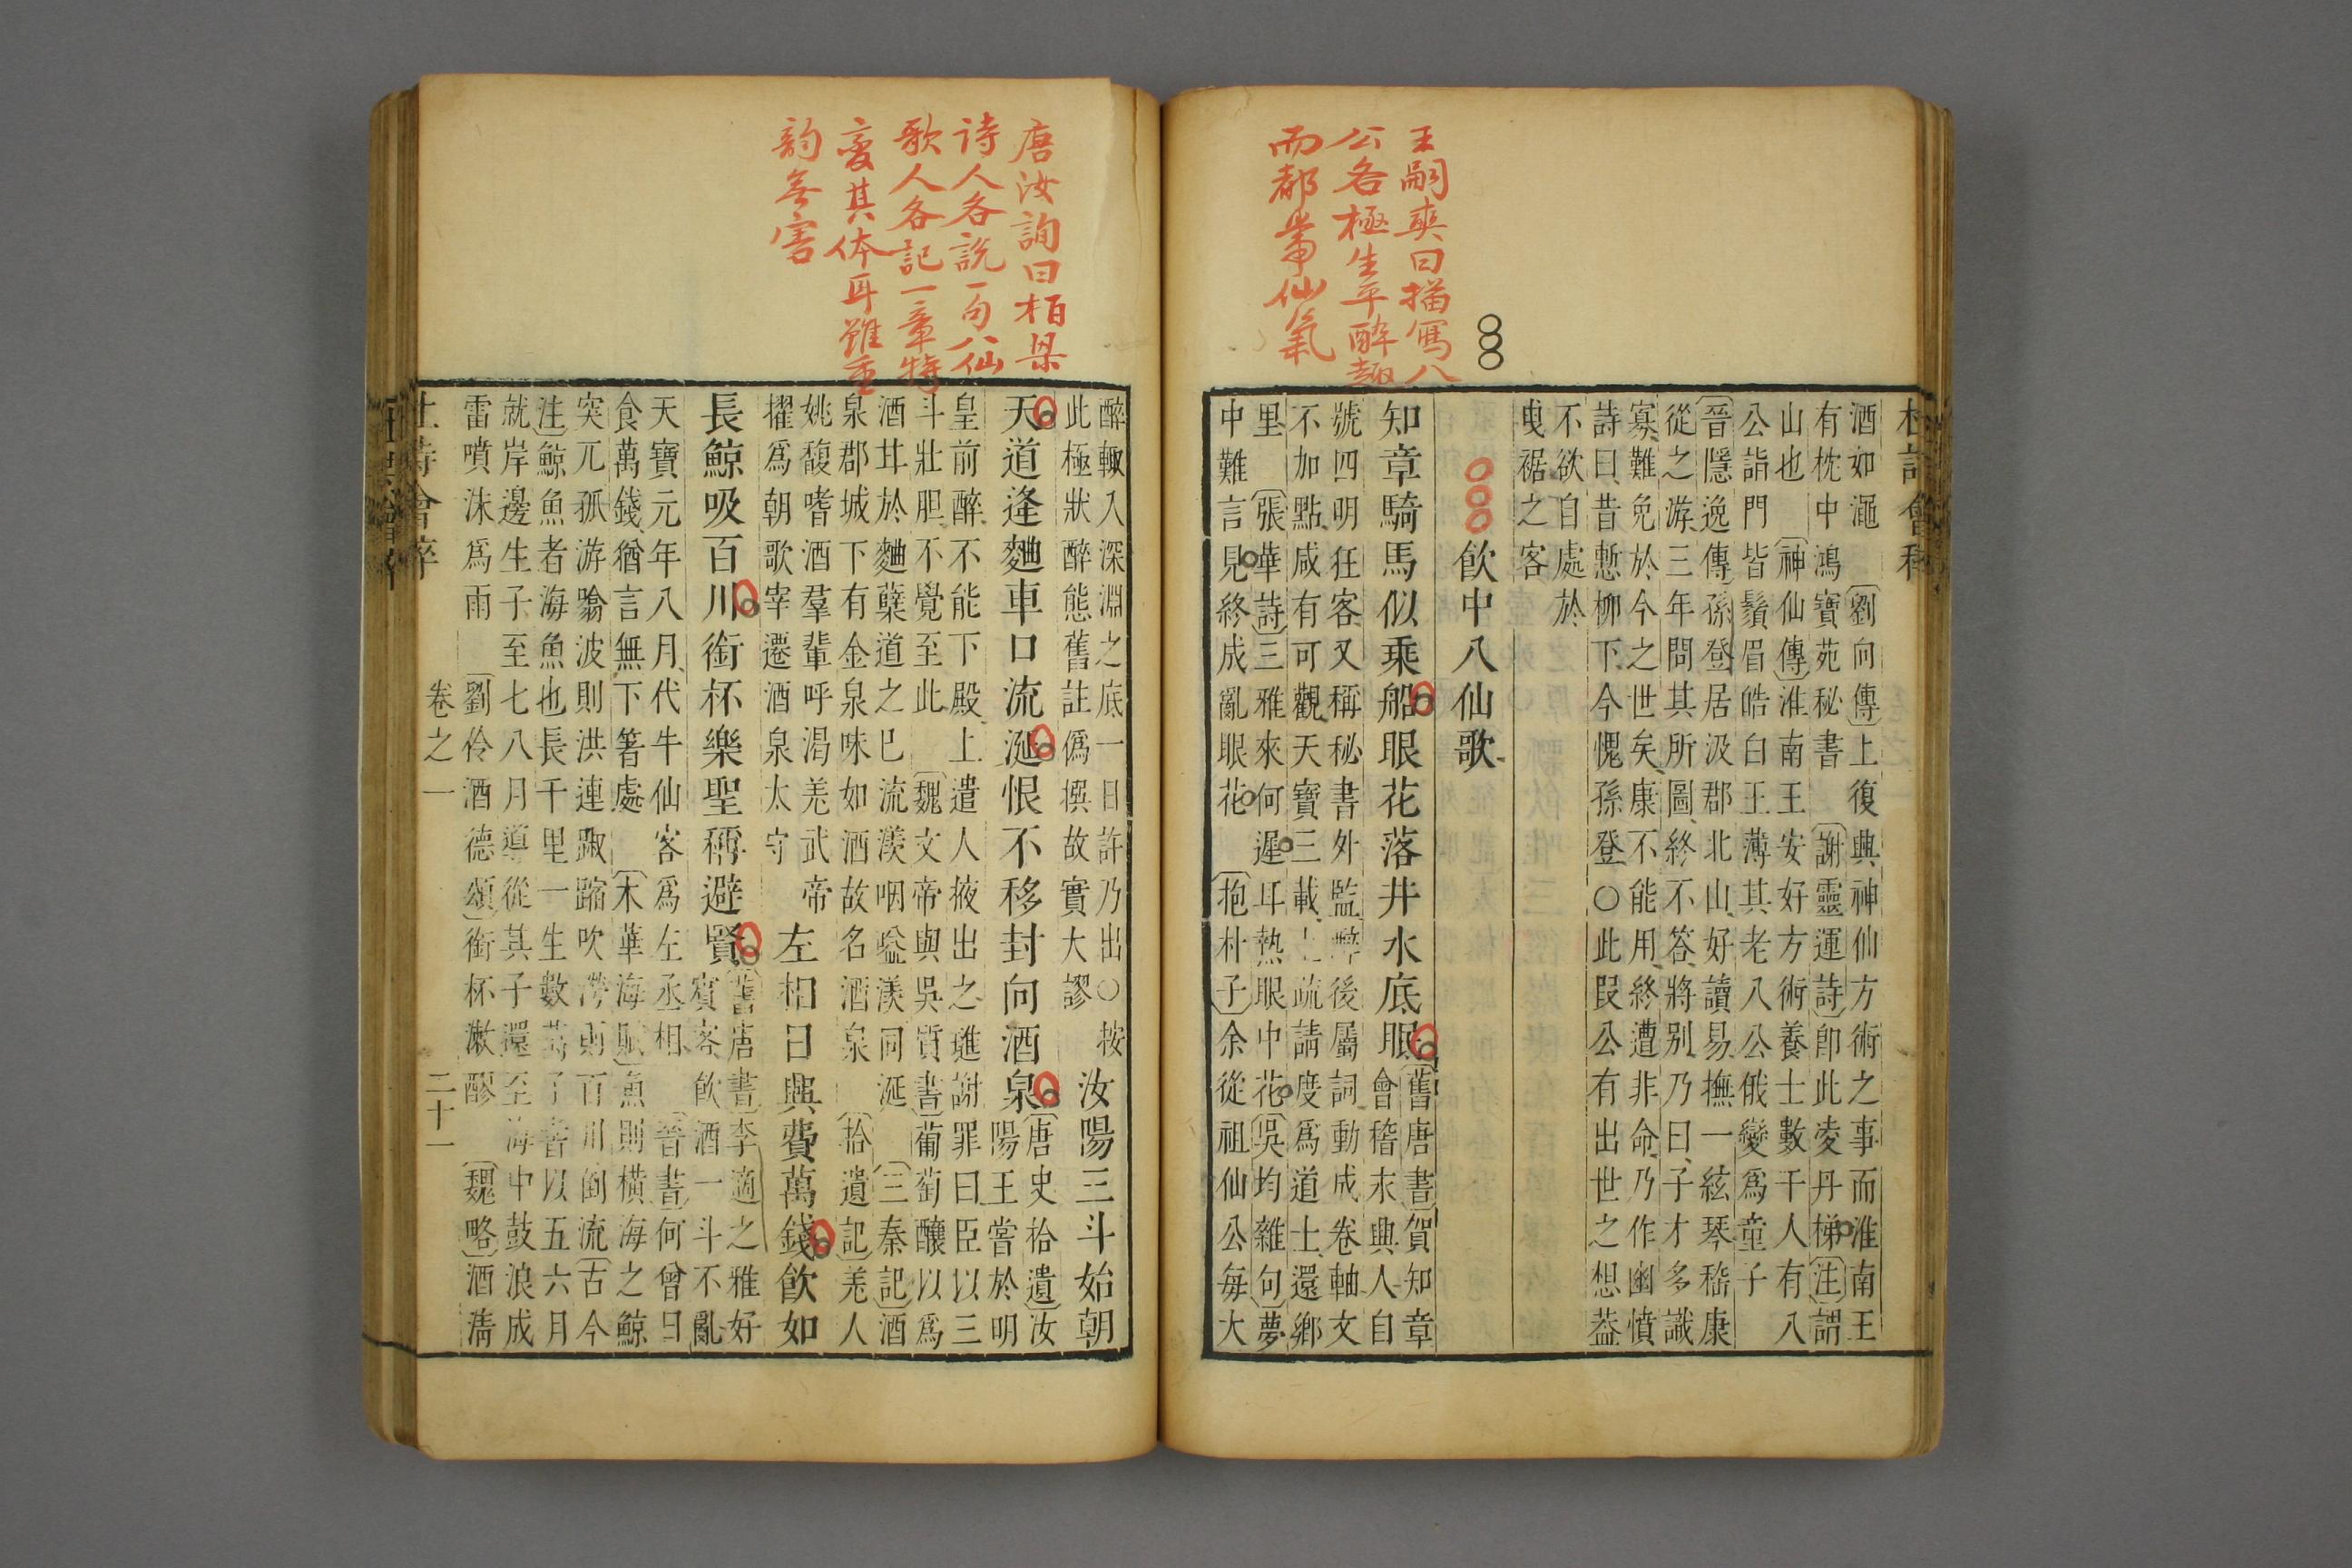 王嗣奭曰描寫八
公各極生平醉趣
而都帶仙氣
酒如澠〔劉向傳〕上復興神仙方術之事而淮南王
有枕中鴻寶苑秘書〔謝靈運詩〕卽此凌丹梯〔注〕謂
山也〔神仙傳〕淮南王安好方術養士數千人有八
公詣門皆鬚眉皓白王薄其老八公俄變爲童子
〔晉隱逸傳〕孫登居汲郡北山好讀易撫一絃琴嵇康
從之游三年問其所圖終不答將别乃曰子才多識
寡難免於今之世矣康不能用終遭非命乃作幽憤
詩曰昔慙柳下今愧孫登○此叚公有出世之想葢
不欲自處於
曳裾之客
飲中八仙歌
知章騎馬似乘船眼花落井水底眠
〔舊唐書〕賀知章
會稽末興人自
號四明狂客又稱秘書外監醉後屬詞動成卷軸文
不加點咸有可觀天寶三載上疏請度爲道士還鄉
里〔張華詩〕三雅來何遲耳熱眼中花〔吳均雜句〕夢
中難言見終成亂眼花〔抱朴子〕余從祖仙公每大
唐汝詢曰柏梁
詩人各說一句八仙
歌人各記一章特
變其体耳雖重
韵無害
醉輙入深淵之底一日許乃出○按
此極狀醉態舊註僞撰故實大謬
汝陽三斗始朝
天道逢麯車口流涎恨不移封向酒泉
〔唐史拾遺〕汝
陽王嘗於明
皇前醉不能下殿上遣人掖出之璡謝罪曰臣以三
斗壯胆不覺至此〔魏文帝與吳質書〕葡萄釀以爲
酒甘於麯蘖道之已流渼咽嗌渼同涎〔三秦記〕酒
泉郡城下有金泉味如酒故名酒泉〔拾遺記〕羌人
姚馥嗜酒羣輩呼渴羌武帝
擢爲朝歌宰遷酒泉太守
左相日興費萬錢飲如
長鯨吸百川銜杯樂聖稱避賢
〔舊唐書〕李適之雅好
賓客飲酒一斗不亂
天寶元年八月代牛仙客爲左丞相〔晉書〕何曾日
食萬錢猶言無下箸處〔木華海賦〕魚則橫海之鯨
突兀孤游噏波則洪連踧蹜吹澇則百川倒流〔古今
注〕鯨魚者海魚也長千里一生數萬子嘗以五六月
就岸邊生子至七八月導從其子還至海中鼓浪成
雷噴沫爲雨〔劉伶酒德頌〕銜杯漱醪〔魏略〕酒清
杜詩會稡 卷之一 二十一